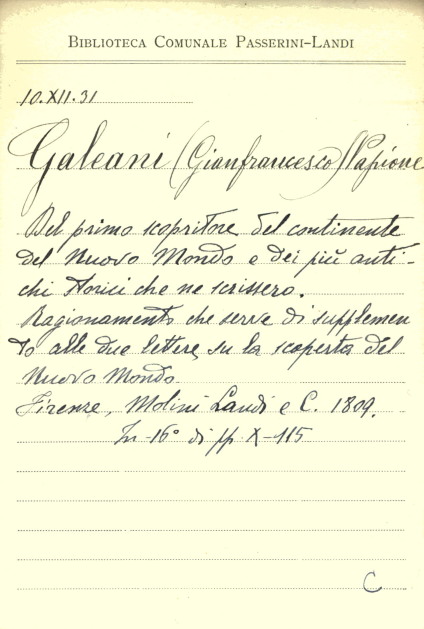 BIBLIOTECA COMUNALE PASSERINI-LANDI
10.XII.31
Galeani (Gianfrancesco) Napione
Del primo scopritore del continente
del Nuovo Mondo e dei più anti-
chi storici che ne scrissero.
Ragionamento che serve di supplemen
to alle due lettere su la scoperta del
Nuovo Mondo.
Firenze, Molini Landi e C. 1809.
In-16° di pp. X-115
C